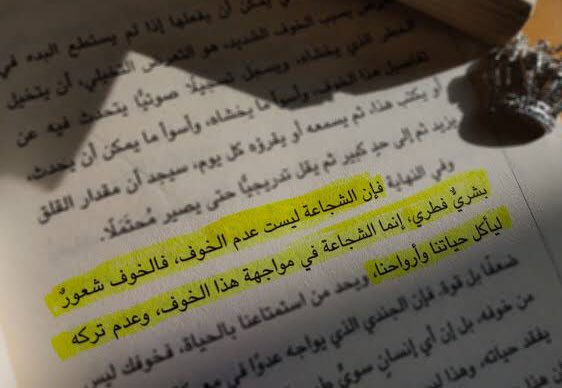 يمكن أن يفعلها إذا لم يستطع البدء في
بسبب الخوف الشديد، هو التعرض التخيلي، أن يتخيل
الخطر الذي يخشاه، ويسجل تسجيلًا صوتيًّا يتحدث فيه عن
تفاصيل هذا الخوف، وأسوأ ما يخشاه، وأسوأ ما يمكن أن يحدث،
أو يكتب هذا، ثم يسمعه أو يقرؤه كل يوم، سيجد أن مقدار القلق
يزيد ثم إلى حدٍ كبير ثم يقل تدريجيًّا حتى يصير مُحتَمَلًا.
وفي النهاية فإن الشجاعة ليست عدم الخوف، فالخوف شعورٌ
بشريٌّ فطري، إنما الشجاعة في مواجهة هذا الخوف، وعدم تركه
ليأكل حياتنا وأرواحنا، ويحد من استمتاعنا بالحياة، فخوفك ليس
ضعفًا بل قوة. فإن الجندي الذي يواجه عدوًّا في
من خوفه، بل إن أي إنسان سويٍّ
يفقد حياته، وهذا